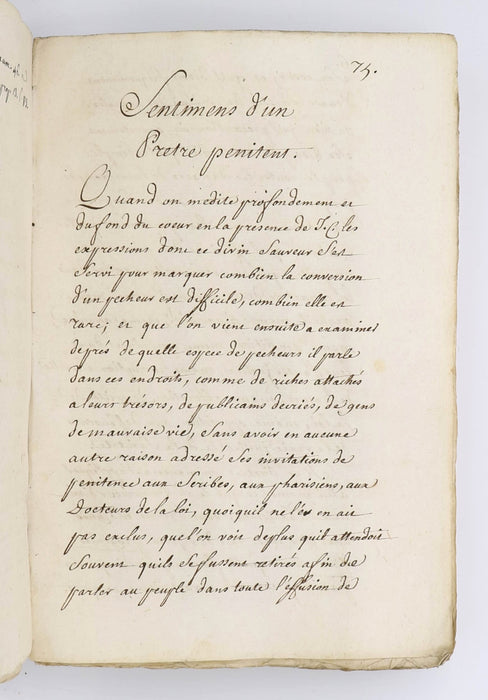 75.
Sentimens d'un
Pretre penitent.
Quand on medite profondement et
du fond du coeur en la presence de J.C. les
expressions dont ce divin Sauveur s'est
servi pour marquer combien la conversion
d'un pecheur est difficile, combien elle est
rare; et que l'on vient ensuite a examiner
de prés de quelle espece de pecheurs il parle
dans ces endroits, comme de riches attachés
a leurs trésors, de publicains decriés, de gens
de mauvaise vie, sans avoir en aucune
autre raison adressé ses invitations de
penitence aux Scribes, aux pharisiens, aux
Docteurs de la loi, quoiquil ne les en ait
pas exclus, que l'on voit de plus quil attendoit
souvent quils se fussent retirés afin de
parler au peuple dans toute l'effusion de